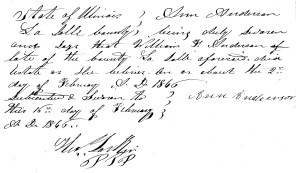 State of Illinois } Ann Anderson
La Salle County } being duly sworn
and says that William H Anderson of
late of the County La Salle aforesaid died
intestate as she believes on or about the 2nd
day of February A D 1866
Subscribed & Sworn to } Ann Anderson
this 15th day of February }
A D 1866.